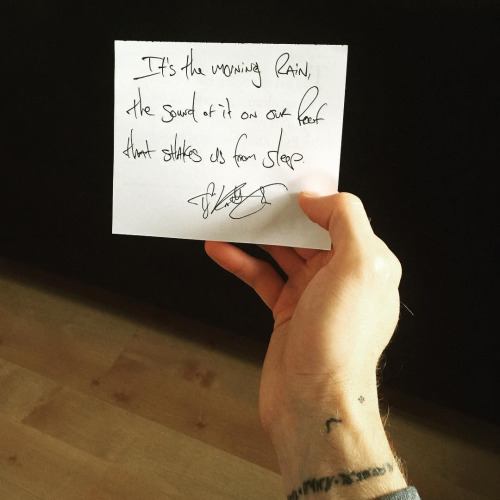 It's the morning RAIN,
the sound of it on our Roof
that shakes us from sleep.